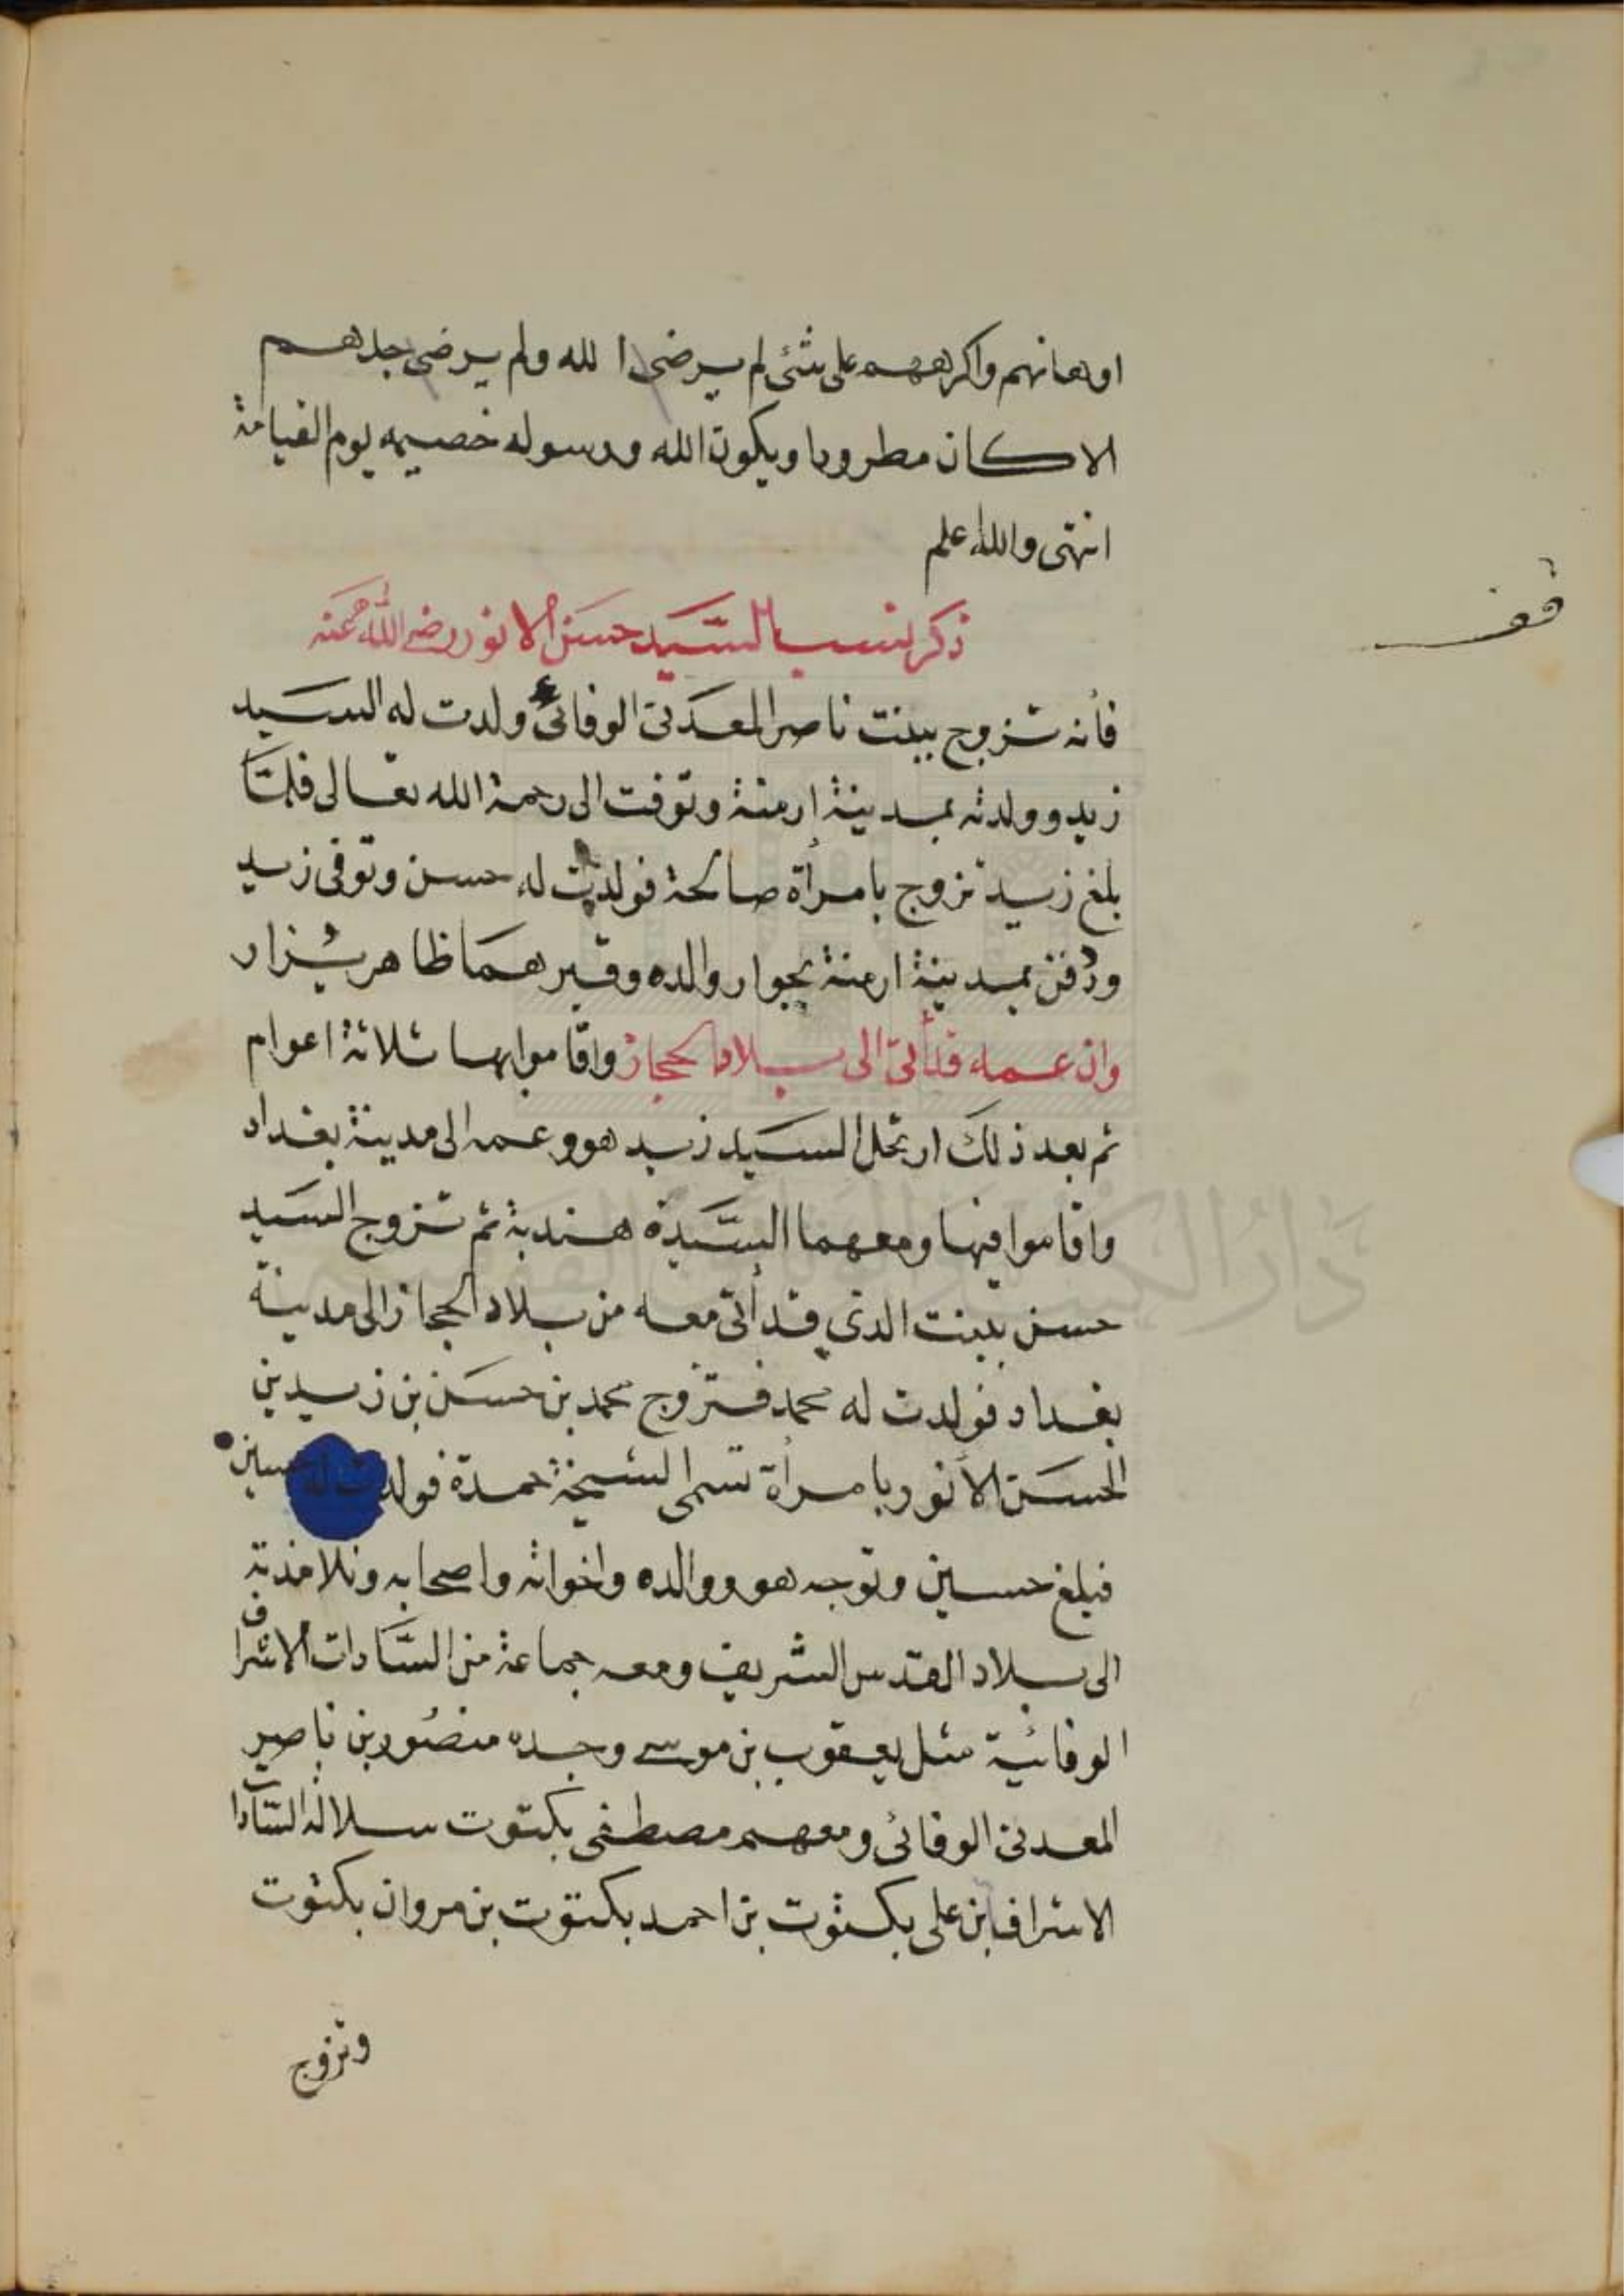 اوهانهم واكرههم على شئ لم يرضى الله ولم يرضى جدهم
الا كان مطرودا ويكون الله ورسوله خصيمه يوم القيامة
انتهى والله اعلم
قف
ذكر نسب السَّيد حسَن الانور رضى الله عنه
فأنه تزوج ببنت ناصر المعدنى الوفائى ولدت له السيد
زيد وولدته بمدينة ارمنة وتوفت الى رحمة الله تعالى فلمَّا
بلغ زيد تزوج بامرأة صالحة فولدت له حسن وتوفى زيد
ودُفن بمدينة ارمنة بجوار والده وقبرهما ظاهر يُزار
وان عمه قد أتى الى بلاد الحجاز واقاموا بها ثلاثة اعوام
ثم بعد ذلك ارتحل السيد زيد هو وعمه الى مدينة بغداد
واقاموا فيها ومعهما السَّيدة هندية ثم تزوج السَيد
حسن ببنت الذى قد أتى معه من بلاد الحجاز الى مدينة
بغداد فولدت له محمد فتزوج محمد بن حسَن بن زيد بن
الحسَن الأنور بامرأة تسمى الشيخة حمدة فولدت له حسين
فبلغ حسين وتوجه هو ووالده واخواته واصحابه وتلامذته
الى بلاد القدس الشريف ومعه جماعة من السَّادات الاشراف
الوفائية مثل يعقوب بن موسى وجده منصُور بن ناصر
المعدنى الوفائى ومعهم مصطفى بكتوت سلالة السَّادات
الاشراف بن على بكتوت بن احمد بكتوت بن مروان بكتوت
وتزوج